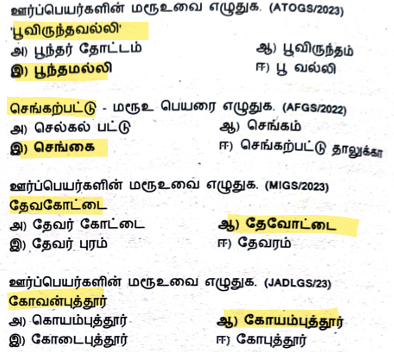 ஊர்ப்பெயர்களின் மரூஉவை எழுதுக. (ATOGS/2023)
'பூவிருந்தவல்லி'
அ) பூந்தர் தோட்டம் ஆ) பூவிருந்தம்
இ) பூந்தமல்லி ஈ) பூ வல்லி
செங்கற்பட்டு - மரூஉ பெயரை எழுதுக. (AFGS/2022)
அ) செல்கல் பட்டு ஆ) செங்கம்
இ) செங்கை ஈ) செங்கற்பட்டு தாலுக்கா
ஊர்ப்பெயர்களின் மரூஉவை எழுதுக. (MIGS/2023)
தேவகோட்டை
அ) தேவர் கோட்டை ஆ) தேவோட்டை
இ) தேவர் புரம் ஈ) தேவரம்
ஊர்ப்பெயர்களின் மரூஉவை எழுதுக. (JADLGS/23)
கோவன்புத்தூர்
அ) கொயம்புத்தூர் ஆ) கோயம்புத்தூர்
இ) கோடைபுத்தூர் ஈ) கோபுத்தூர்